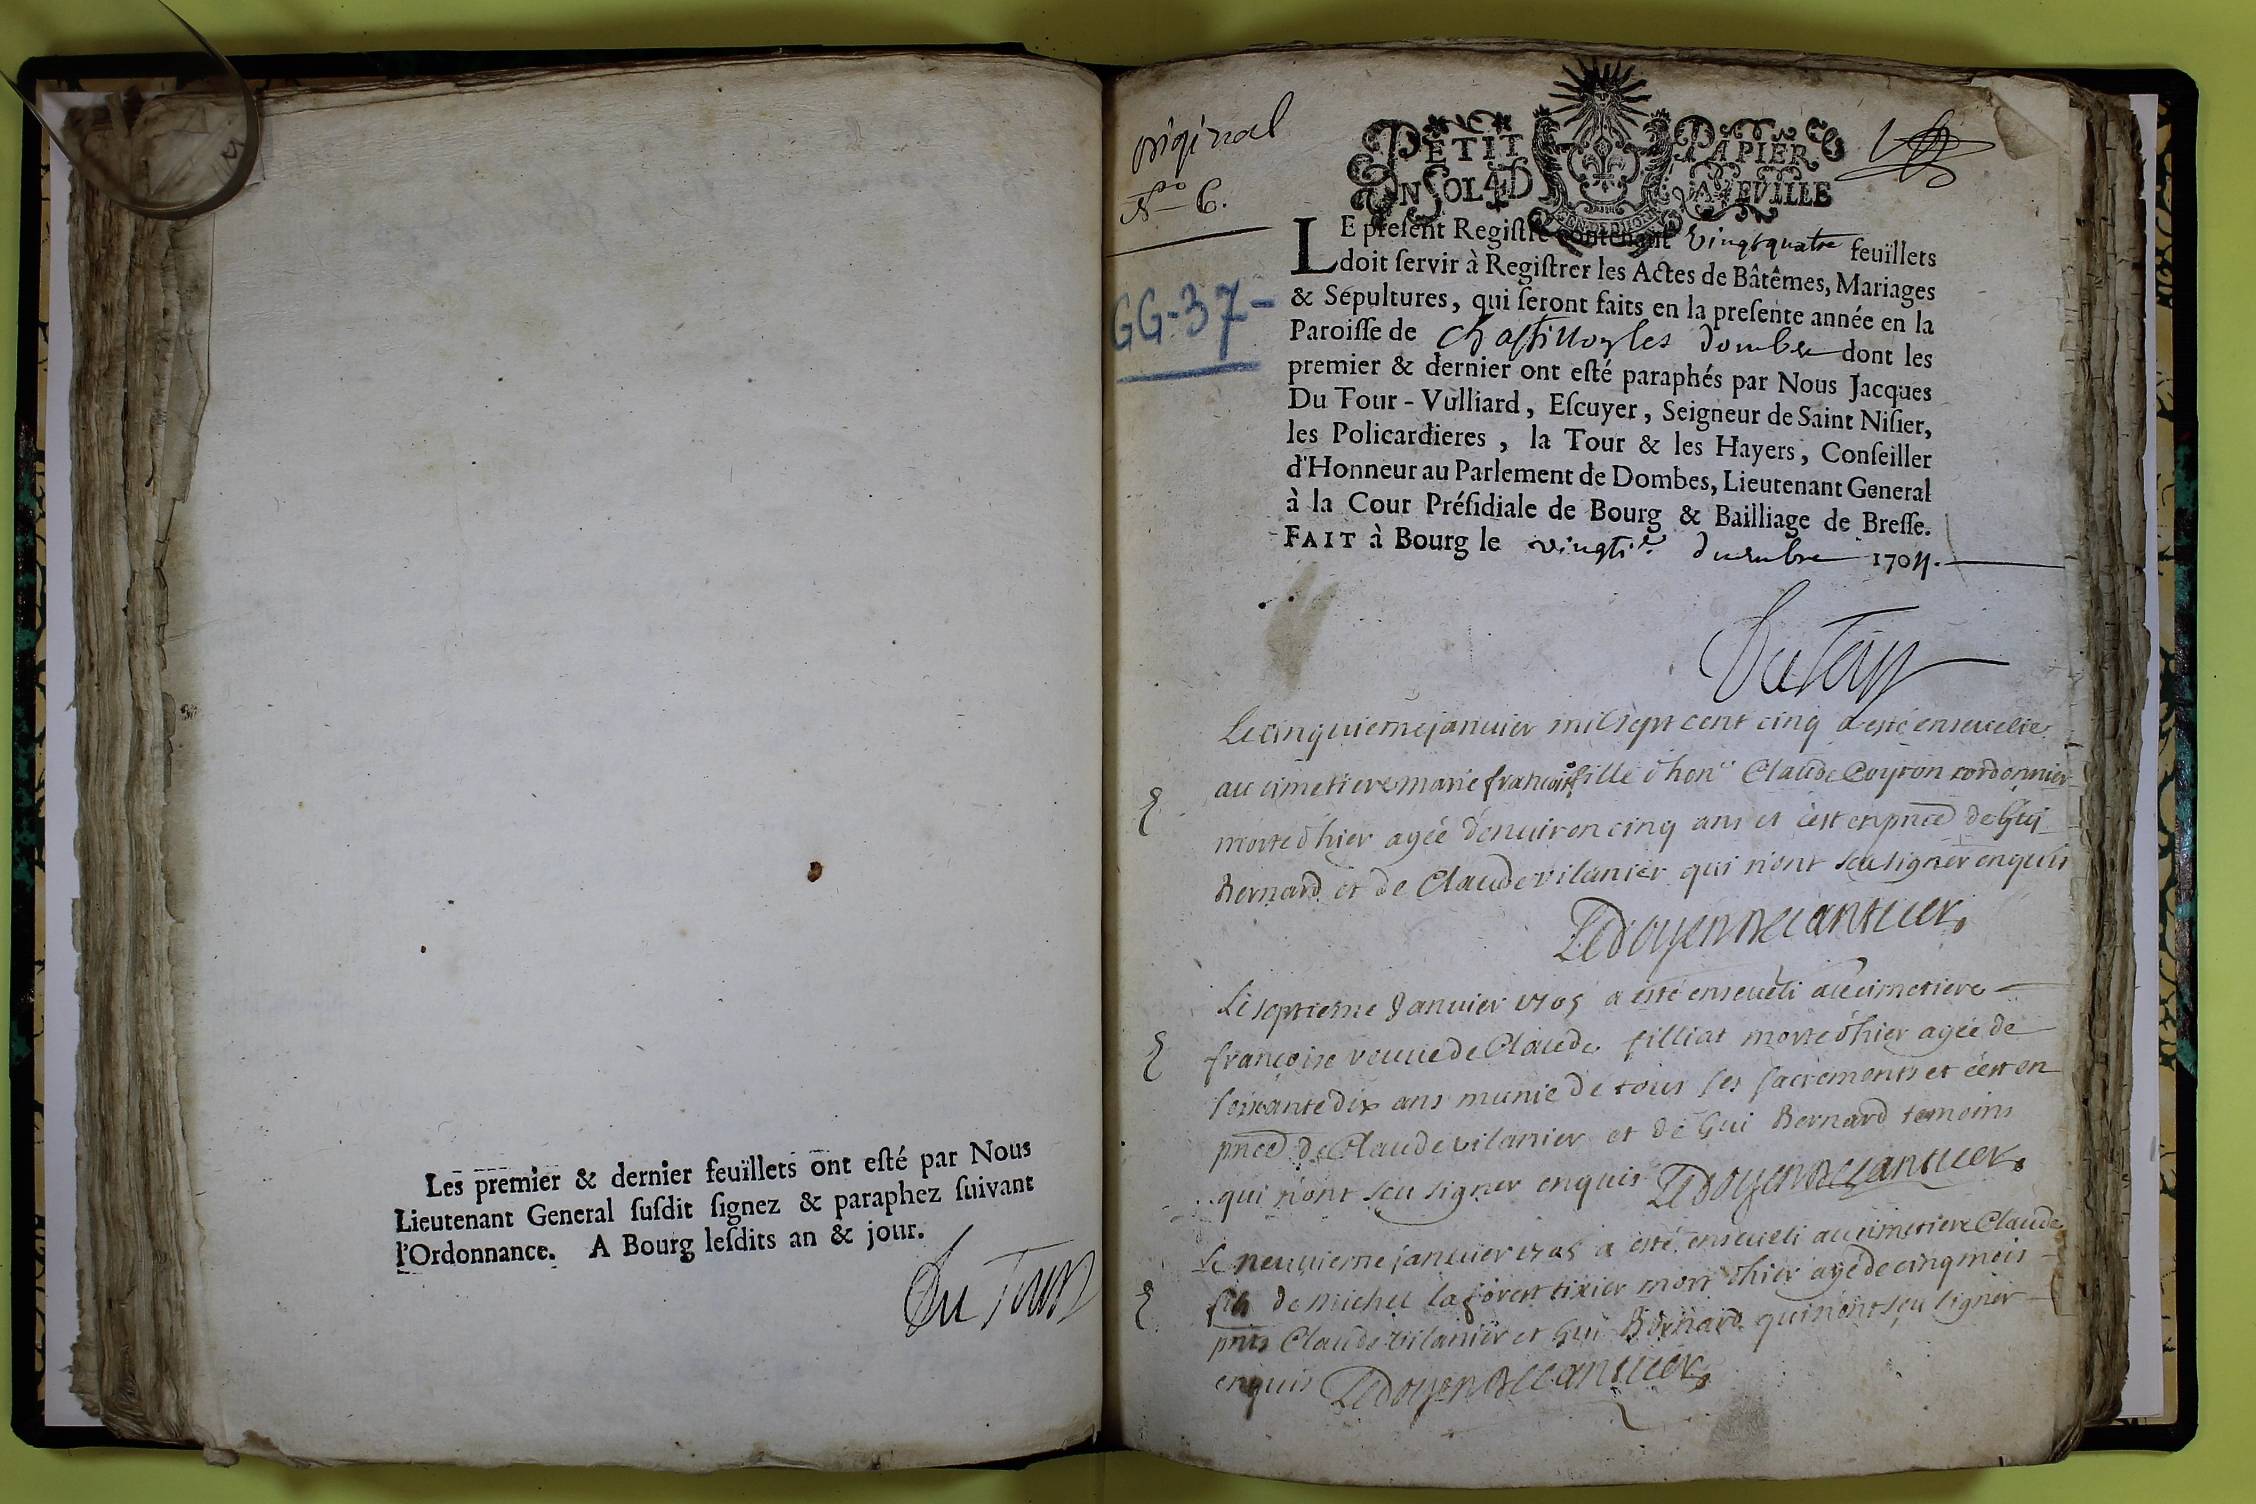 Les premier & dernier feuïllets ont eſté par Nous
Lieutenant General ſuſdit ſignez & paraphez ſuivant
l'Ordonnance. A Bourg leſdits an & jour.
Du Tour
original
N° 6.
GG-37-
PETIT PAPIER
UN SOL 4 D LA FEUILLE
GEN. DE DIJON
LE preſent Regiſtre contenant vingtquatre feuïllets
doit ſervir à Regiſtrer les Actes de Bâtêmes, Mariages
& Sépultures, qui ſeront faits en la preſente année en la
Paroiſſe de Chastillon les Dombe dont les
premier & dernier ont eſté paraphés par Nous Jacques
Du Tour-Vulliard, Eſcuyer, Seigneur de Saint Niſier,
les Policardieres, la Tour & les Hayers, Conſeiller
d'Honneur au Parlement de Dombes, Lieutenant General
à la Cour Préſidiale de Bourg & Bailliage de Breſſe.
FAIT à Bourg le vingtie. decembre 1704.
Du Tour
Le cinquieme janvier mil sept cent cinq a esté ensevelie
au cimetiere marie francoise fille d'hon. Claude Poyron cordonnier
morte d'hier agée d'enuiron cinq ans et c'est en pnce de Gui
Bernard et de Claude vilanier qui n'ont sceu signer enquis
Le doyen
Le septieme Janvier 1705 a esté enseveli au cimetiere
françoise veuve de Claude filliat morte d'hier agée de
soixante dix ans munie de tous ses sacrements et c'est en
pnce de Claude vilanier et de Gui Bernard temoins
qui n'ont sceu signer enquis Le doyen
Le neuvieme janvier 1705 a esté enseveli au cimetiere Claude
fils de michel laforest tixier mort d'hier agé de cinq mois
pnts Claude vilanier et Gui Bernard qui n'ont sçeu signer
enquis Le doyen